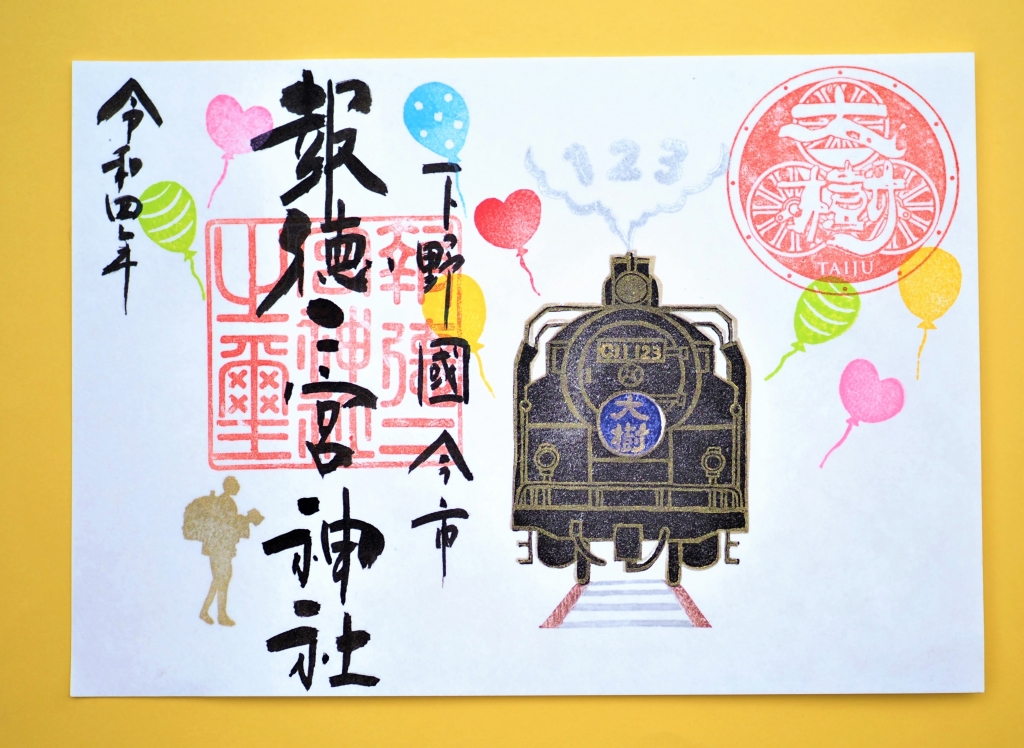 大樹
TAIJU
123
C11 123
大樹
下野國今市
報徳二宮神社
報徳二宮神社之璽
令和四年